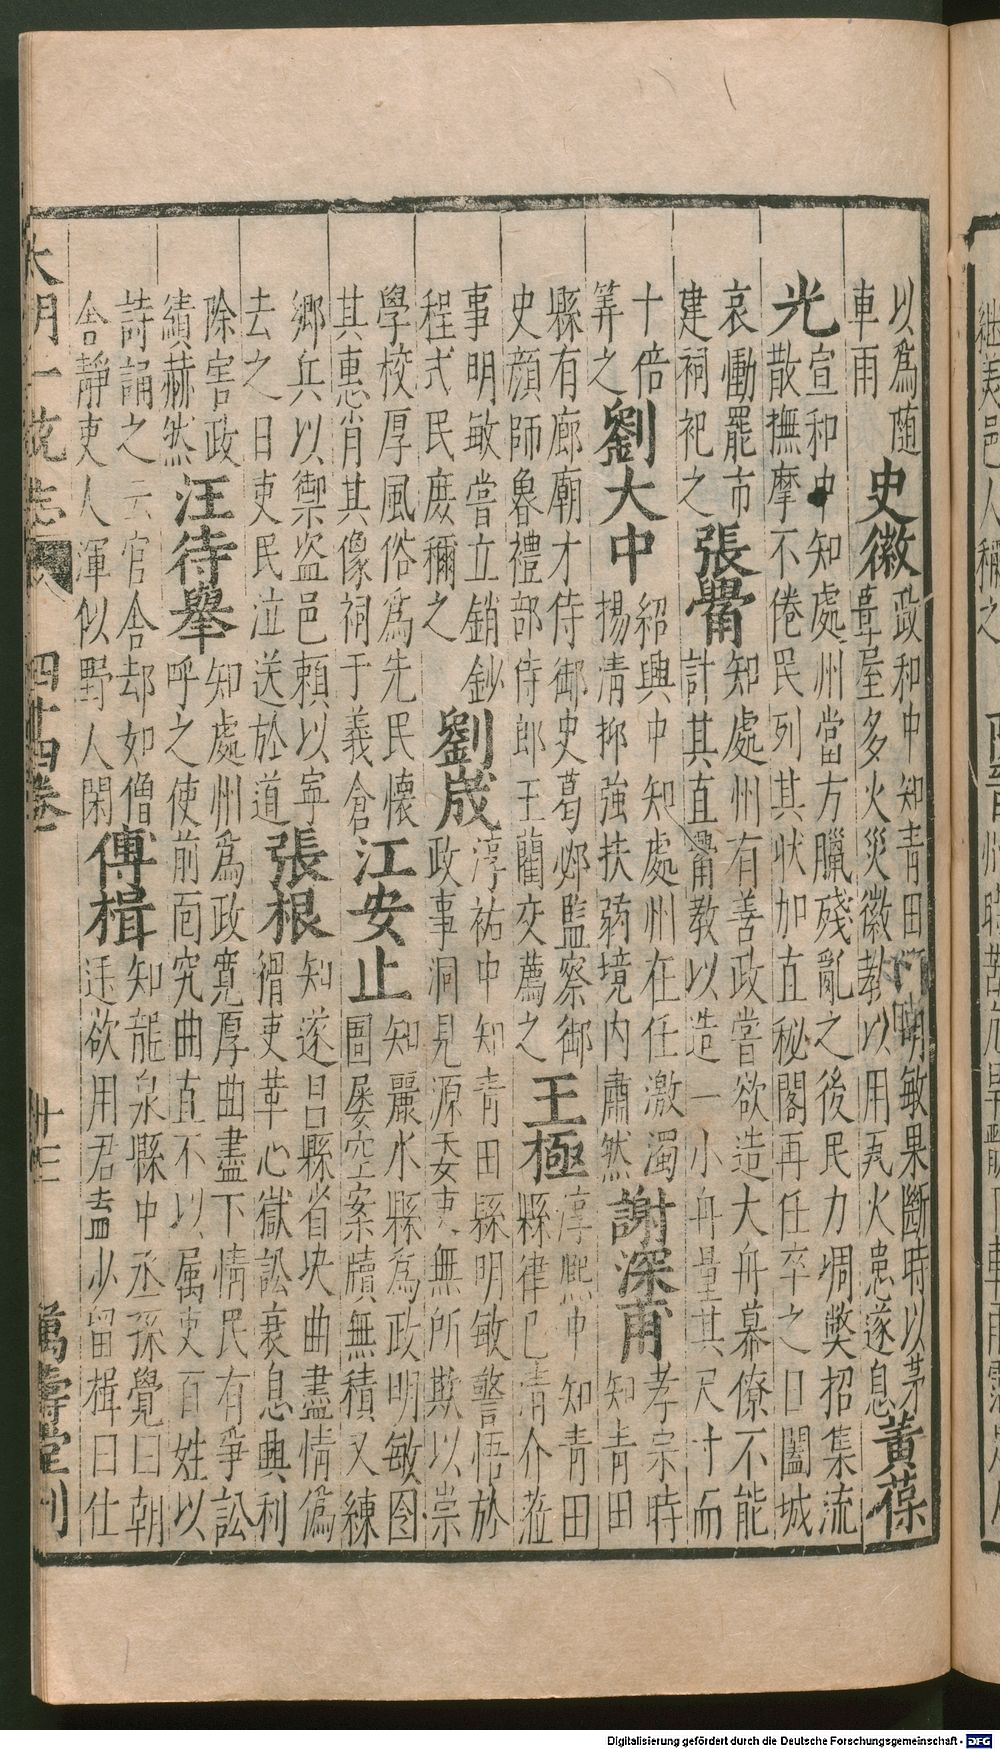 以爲随
車雨
史徽
政和中知青田明敏果斷時以茅
草屋多火災徽教以用瓦火患遂息
黃葆
光
宣和中知處州當方臘殘亂之後民力凋獘招集流
散撫摩不倦民列其狀加直秘閣再任卒之日闔城
哀慟罷市
建祠祀之
張觷
知處州有善政嘗欲造大舟幕僚不能
計其直觷教以造一小舟量其尺寸而
十倍
筭之
劉大中
紹興中知處州在任激濁
揚清抑強扶弱境内肅然
謝深甫
孝宗時
知青田
縣有廊廟才侍御史葛邲監察御
史顔師魯禮部侍郎王藺交薦之
王極
淳熙中知青田
縣律己清介蒞
事明敏嘗立銷鈔
程式民庶稱之
劉宬
淳祐中知青田縣明敏警悟於
政事洞見源委吏無所欺以崇
學校厚風俗爲先民懷
其惠肖其像祠于義倉
江安止
知麗水縣爲政明敏囹
圄屢空案牘無積又練
鄉兵以禦盗邑頼以寜
去之日吏民泣送於道
張根
知遂昌縣省决曲盡情僞
猾吏革心獄訟衰息興利
除害政
績赫然
汪待舉
知處州爲政寬厚曲盡下情民有爭訟
呼之使前面究曲直不以属吏百姓以
詩誦之云官舎却如僧
舎靜吏人渾似野人閑
傅楫
知龍泉縣中丞孫覺曰朝
廷欲用君盍少留楫曰仕
大明一統志
四十四卷
十三
萬壽堂刊
Digitalisierung gefördert durch die Deutsche Forschungsgemeinschaft - DFG